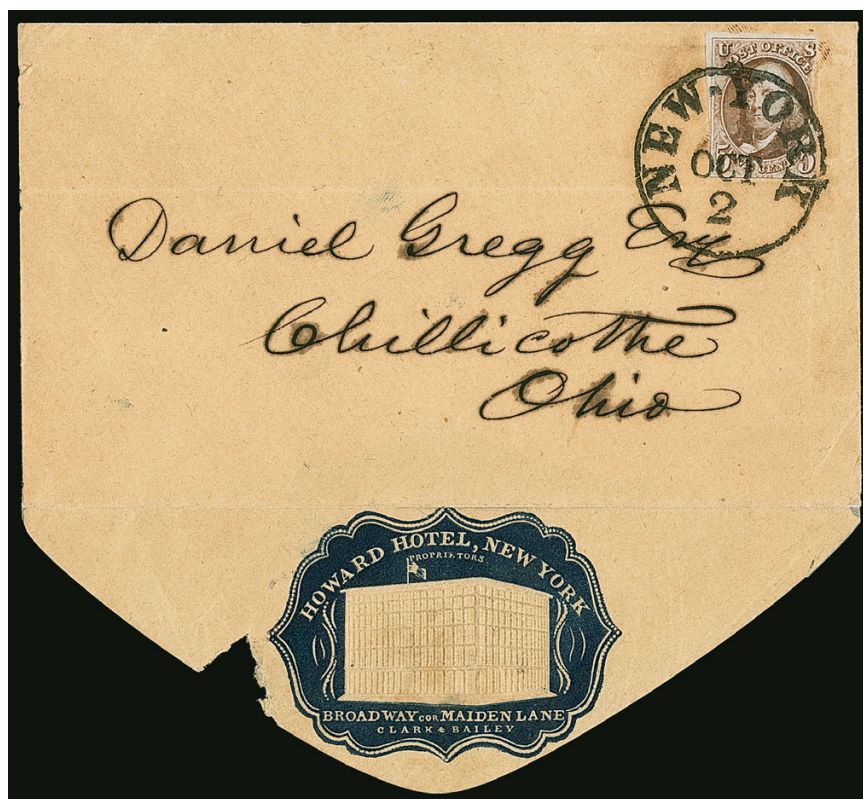 U S
POST OFFICE
NEW-YORK
OCT
2
Daniel Gregg Esq
Chillicothe
Ohio
HOWARD HOTEL, NEW YORK
PROPRIETORS
BROADWAY COR MAIDEN LANE
CLARK & BAILEY